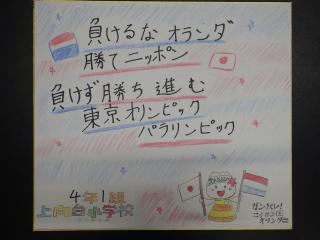 負けるな オランダ
勝て ニッポン
負けず 勝ち 進む
東京オリンピック
パラリンピック
4年1組
上向台小学校
ガンバレ!
ニッポン&
オランダ